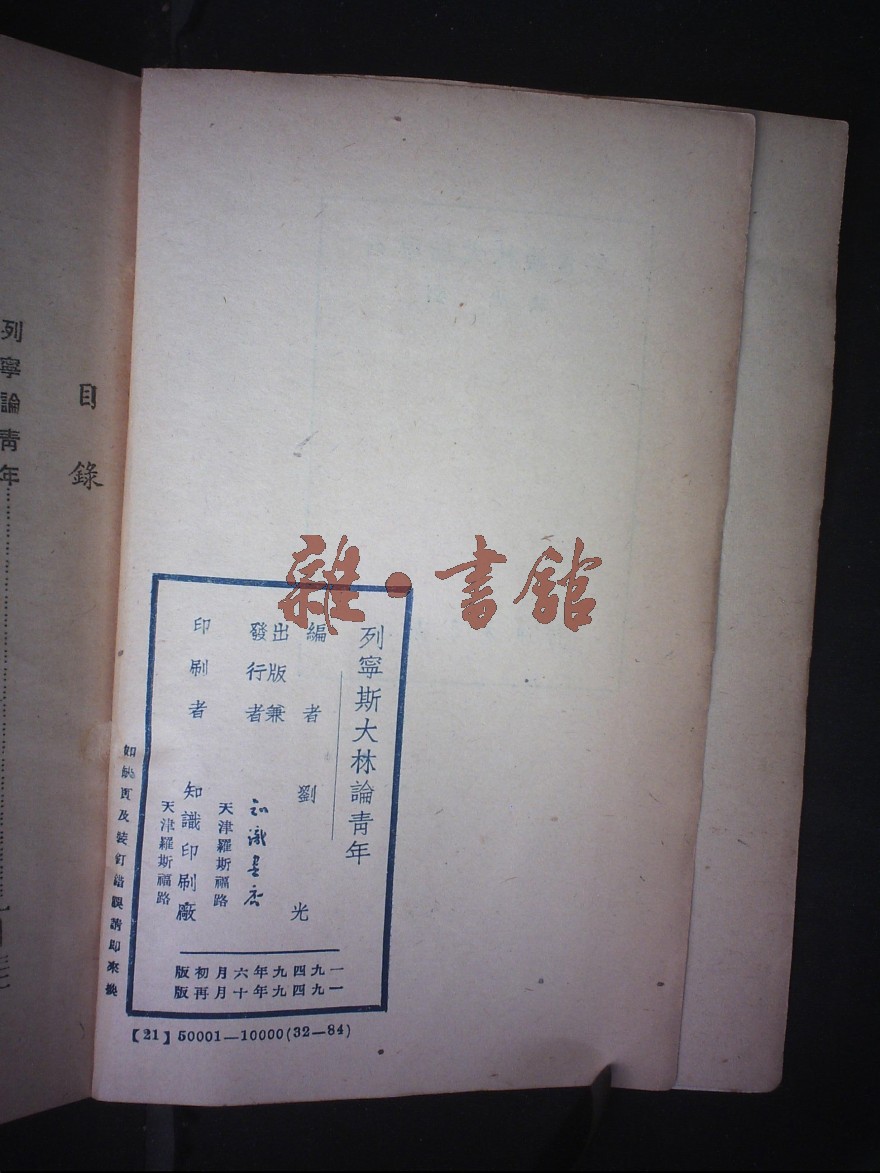 列寧斯大林論青年
編者 劉光
出版兼
發行者 知識書店
天津羅斯福路
印刷者 知識印刷廠
天津羅斯福路
一九四九年六月初版
一九四九年十月再版
如缺頁及裝釘錯誤請即來換
【21】50001—10000(32—84)
目錄
列寧論青年
雜·書館